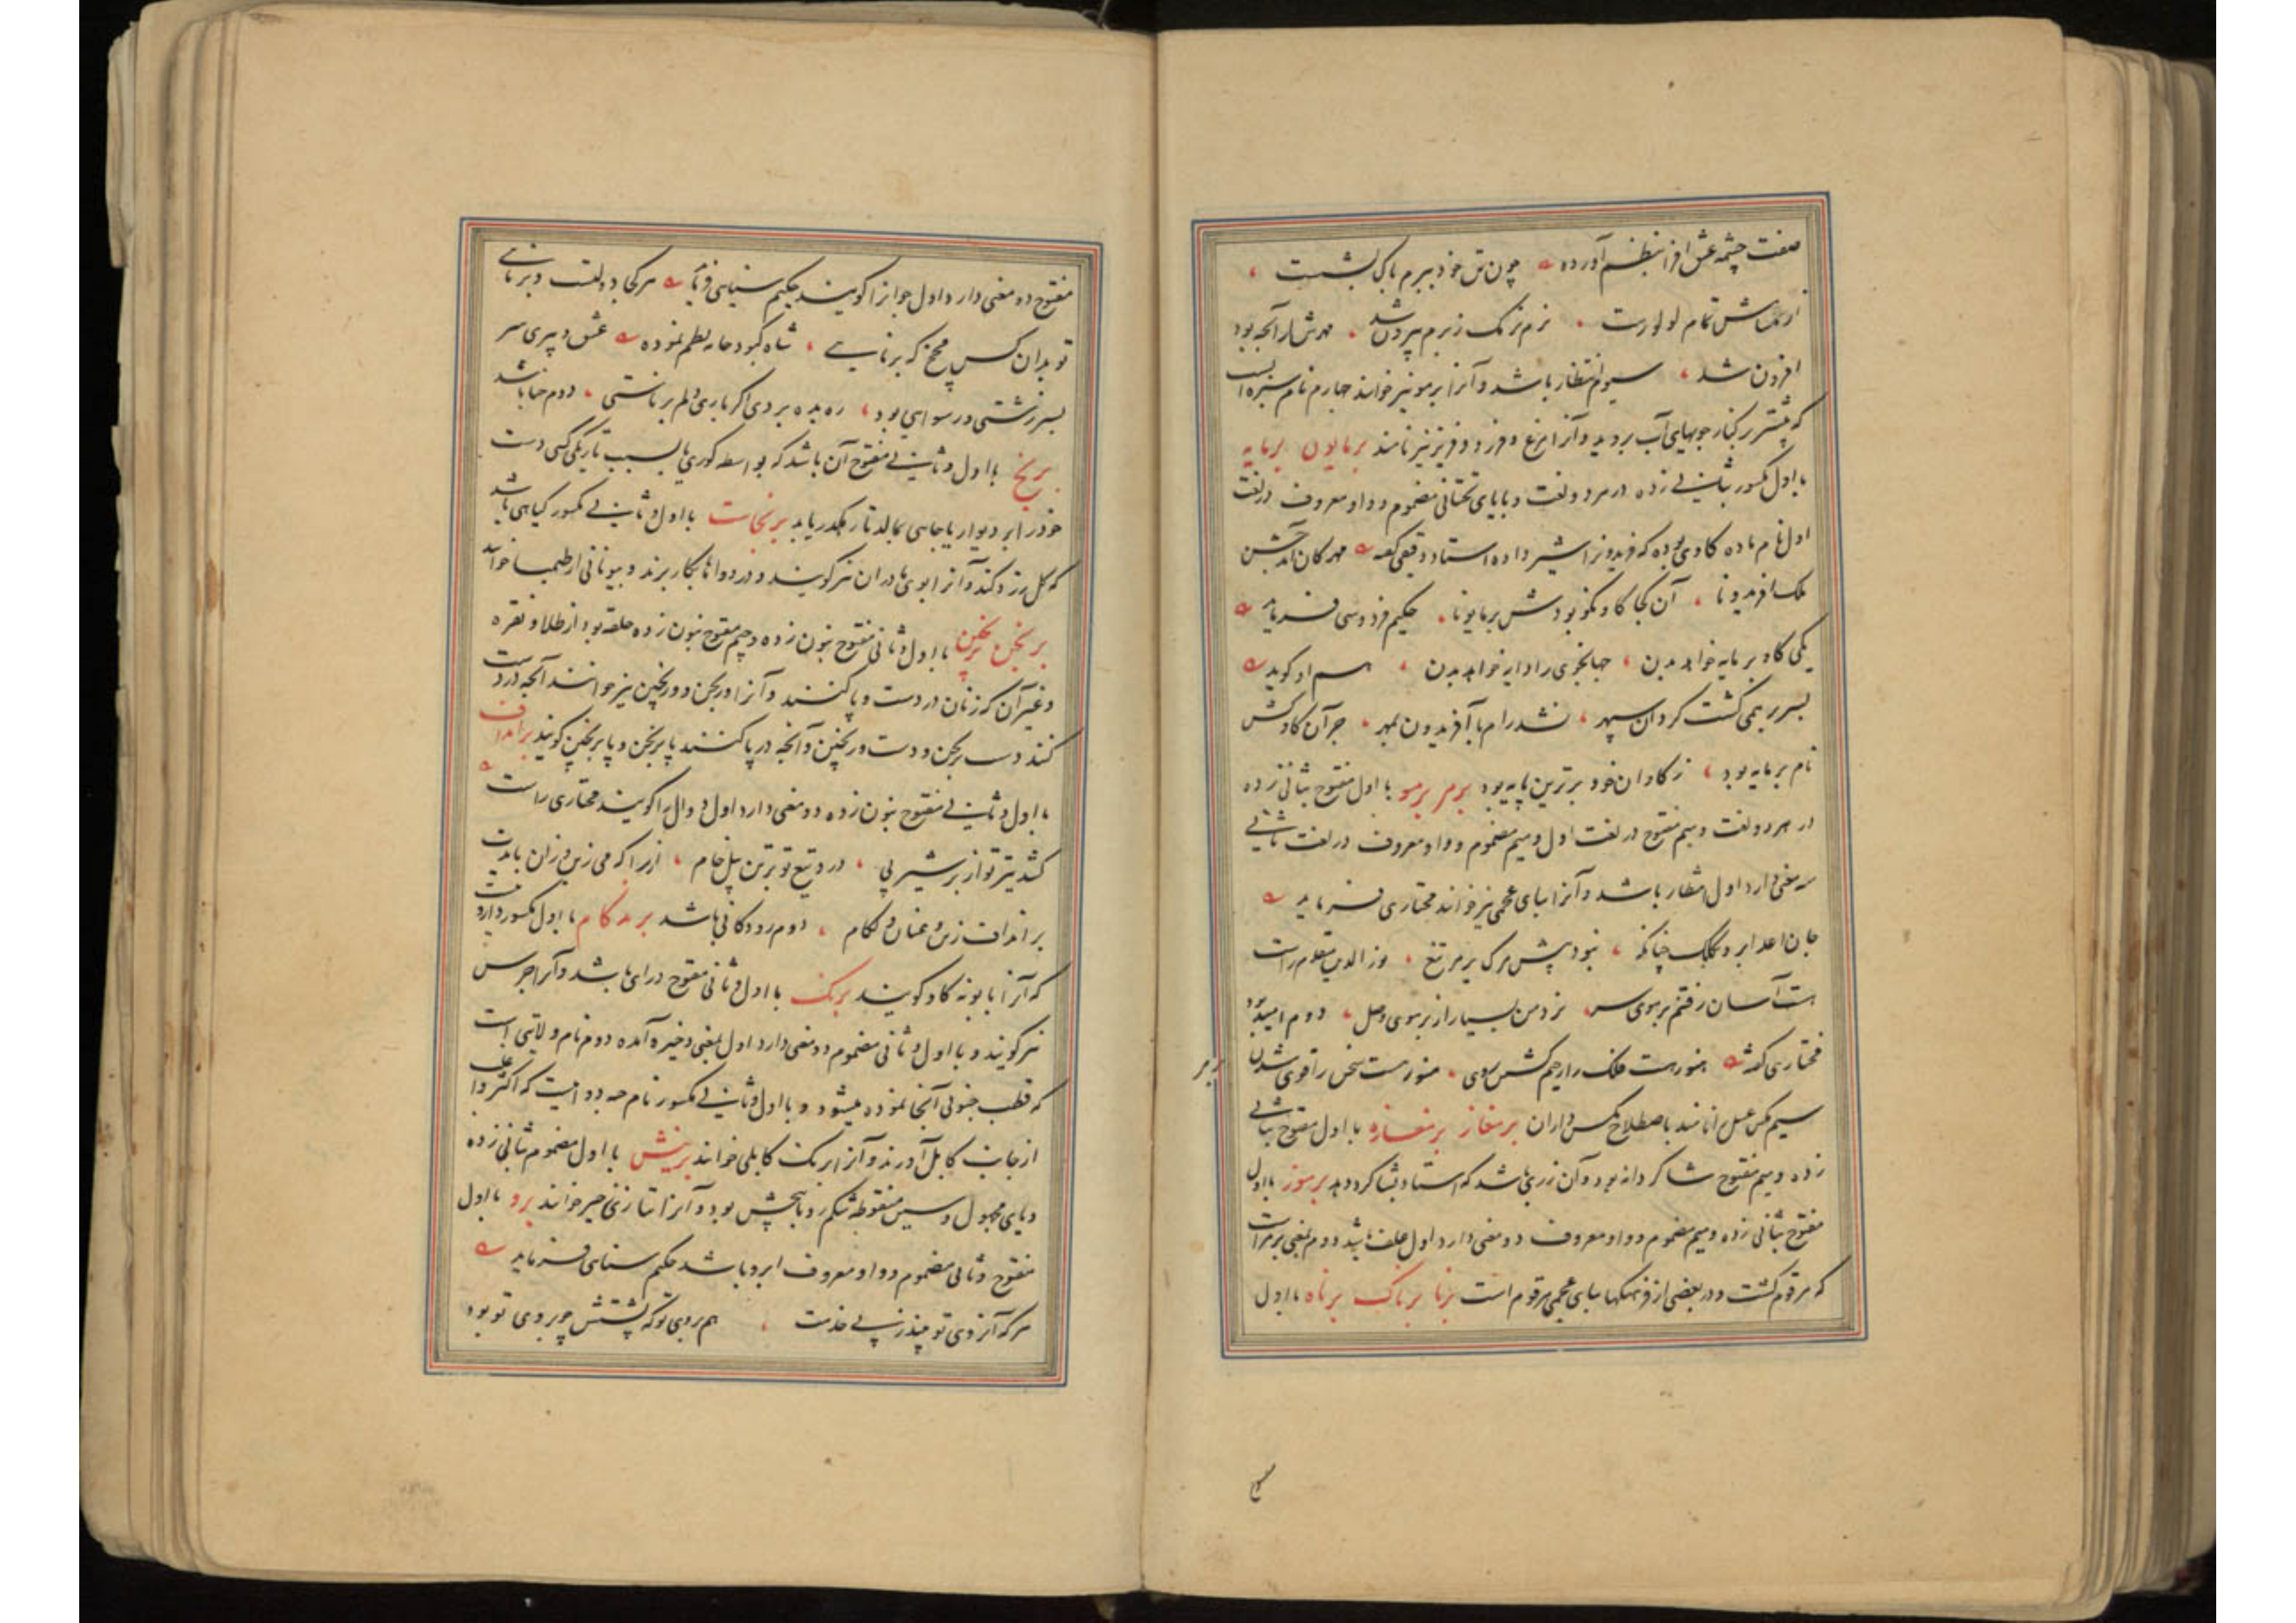 صفت چشمه عشق افزا بنظم آورده چون تن خود ببرم پاک بشست
از تمام لولو رست نرم نرمک ز برم بیرون شد مهرش از آنچه بود
افزون شد سیوم انتظار باشد و آنرا برمو نیز خوانند چهارم نام سبزه ایست
که بیشتر بر کنار جویهای آب بروید و آنرا مرغ و فرزد و فریز نیز نامند برمایون برمایه
با اول مکسور بثانی زده در هر دو لغت و با یای تحتانی مضموم و واو معروف در لغت
اول نام ماده گاوی بوده که فریدونرا شیر داده استاد دقیقی گفته مهرکان آمد جشن
ملک افریدونا آن کجا گاو نکو بودش برمایونا حکیم فردوسی فرماید
یکی گاو برمایه خواهد بدن جهانجوی را دایه خواهد بدن هم او گوید
بسر بر همی گشت گردان سپهر شد رام با آفریدون بمهر جز آن گاو کش
نام برمایه بود ز گاوان خود برترین پایه بود برمر برمو با اول مفتوح بثانی زده
در هر دو لغت و میم مفتوح در لغت اول و میم مضموم و واو معروف در لغت ثانی
سه معنی دارد اول انتظار باشد و آنرا ببای عجمی نیز خوانند مختاری فرماید
جان اعدا برد چنانکه نبود پیش مرک برمر تیغ
هست آسان رفتنم بر سوی نزد من بسیار از برموی وصل دوم امید بود
مختاری گفته هنوز هست فلک را هنوز هست سخن را قوی شدن
سیم مکس عسل را نامند باصطلاح مکس داران برمغاز برمغازه با اول مفتوح بثانی
زده و میم مفتوح شاکردانه بود و آن زری باشد که استاد بشاکرد دهد برموز با اول
مفتوح بثانی زده و میم مضموم و واو معروف دو معنی دارد اول علف باشد دوم بمعنی برمر است
که مرقوم گشت و در بعضی از فرهنگها ببای عجمی مرقوم است برنا برناک برناه با اول
مفتوح دو معنی دارد اول جوانرا گویند حکیم سنایی فرماید هر کجا دولتست و برنایی
تو بدان کس مخ که برناییی شاه کبود جامه نظم نموده عشق و پیری سر
بسر زشتی و رسوایی بود ره بده بردی اگر باری دلم برناستی دوم حنا باشد
برنخ با اول و ثانی مفتوح آن باشد که بواسطه کوری یا بسبب تاریکی کسی دست
خود را بر دیوار یا جایی بمالد تا رهگذر یابد برنجاست با اول و ثانی مکسور گیاهی باشد
که گل زرد کند و آنرا بوی مادران نیز گویند و در دواها بکار برند و بیونانی ارطمیسا خوانند
برنجن برنجین با اول و ثانی مفتوح بنون زده و جیم مفتوح بنون زده حلقه بود از طلا و نقره
و غیر آن که زنان در دست و پا کنند و آنرا ورنجن و ورنجین نیز خوانند آنچه در دست
کنند دست برنجن و دست ورنجین و آنچه در پا کنند پا برنجن و پا برنجین گویند برانداف
با اول و ثانی مفتوح بنون زده دو معنی دارد اول دوال را گویند مختاری راست
کشد تیر تو از بر شیر پی درد تیغ تو بر تن پیل خام از یرا که می زین و ران بایدت
برنداف زین و عنان و لکام دوم رودکانی باشد برندکام با اول مکسور دارو
که آنرا بابونه گاو گویند برنک با اول و ثانی مفتوح درای باشد و آنرا جرس
نیز گویند و با اول و ثانی مضموم دو معنی دارد اول بمعنی ذخیره آمده دوم نام ولایتی است
که قطب جنوبی آنجا نموده میشود و با اول و ثانی مکسور نام حبه دوائیست که اکثر و اغلب
از جانب کابل آورند و آنرا برنک کابلی خوانند برنیش با اول مضموم بثانی زده
و یای مجهول و سین منقوطه شکم رو با پیچش بود و آنرا بتازی زحیر خوانند برو با اول
مفتوح و ثانی مضموم و واو معروف ابرو باشد حکیم سنایی فرماید
هر که آنروی تو پی خدمت هم بروی تو که پشتش چو بروی تو بود